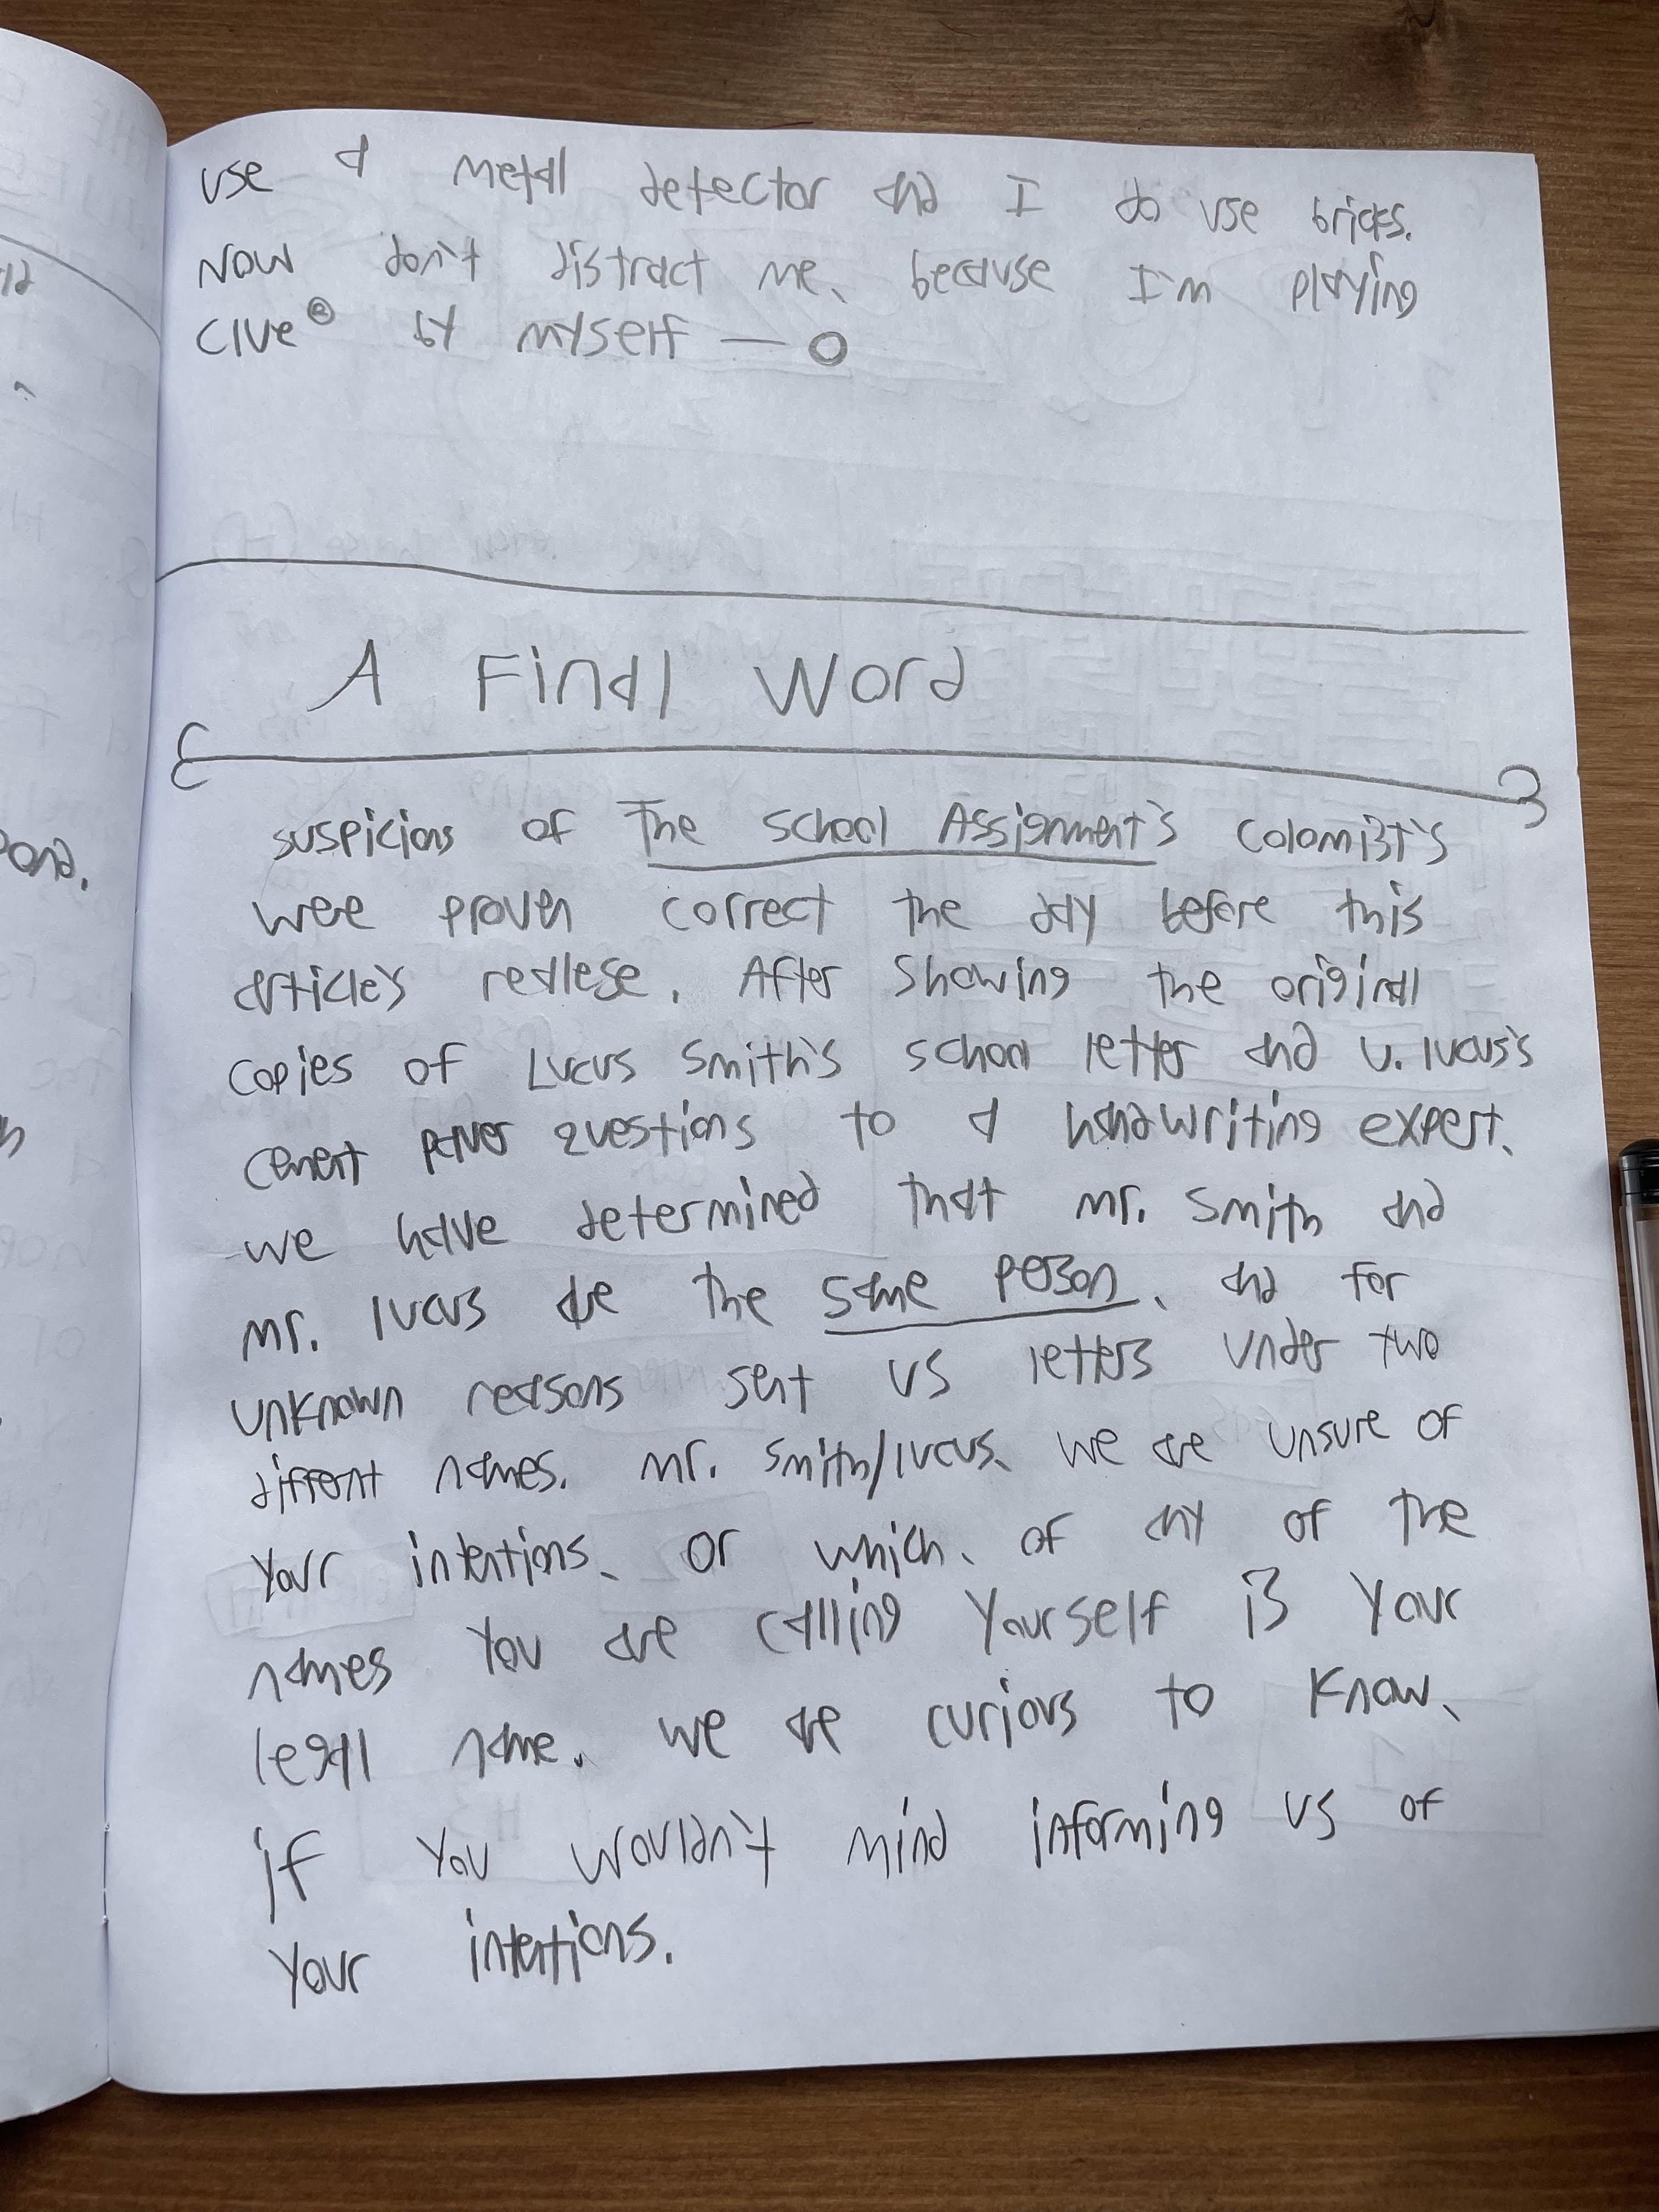 use a metal detector and I do use bricks.
Now don't distract me, because I'm playing
Clue® by myself — O
A Final Word
suspicions of The School Assignment's Colomist's
wee proven correct the day before this
article's realese. After showing the original
copies of Lucus Smith's school letter and U. lucus's
cement paver questions to a handwriting expert,
we have determined that mr. Smith and
mr. lucus are the same person, and for
unknown reasons sent us letters under two
diffrent names. mr. smith/lucus, we are unsure of
your intentions, or which, of any of the
names you are calling yourself is your
legal name. we are curious to know,
if you wouldn't mind informing us of
your intentions.